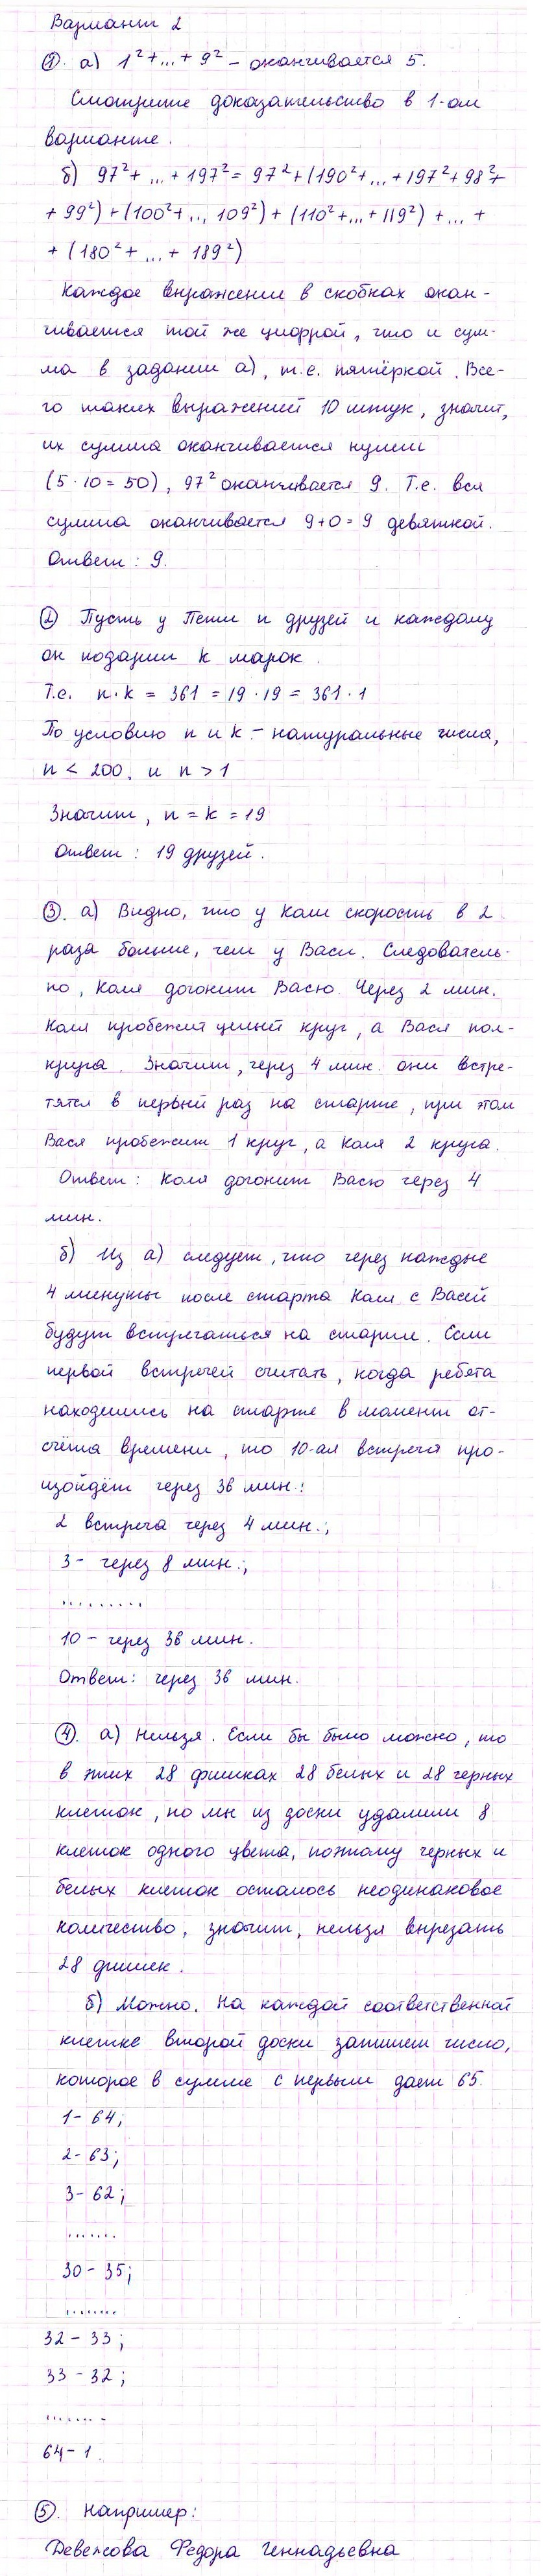 Вариант 2
①. а) 1² + ... + 9² – оканчивается 5.
Смотрите доказательство в 1-ом
варианте.
б) 97² + ... + 197² = 97² + (190² + ... + 197² + 98² +
+ 99²) + (100² + ... 109²) + (110² + ... + 119²) + ... +
+ (180² + ... + 189²)
Каждое выражении в скобках окан-
чивается той же цифрой, что и сум-
ма в задании а), т.е. пятёркой. Все-
го таких выражений 10 штук, значит,
их сумма оканчивается нулем
(5 · 10 = 50), 97² оканчивается 9. Т.е. вся
сумма оканчивается 9 + 0 = 9 девяткой.
Ответ: 9.
② Пусть у Пети n друзей и каждому
он подарил k марок.
Т.е. n · k = 361 = 19 · 19 = 361 · 1
По условию n и k – натуральные числа,
n < 200, и n > 1
Значит, n = k = 19
Ответ: 19 друзей.
③. а) Видно, что у Коли скорость в 2
раза больше, чем у Васи. Следователь-
но, Коля догонит Васю. Через 2 мин.
Коля пробежит целый круг, а Вася пол-
круга. Значит, через 4 мин. они встре-
тятся в первый раз на старте, при этом
Вася пробежит 1 круг, а Коля 2 круга.
Ответ: Коля догонит Васю через 4
мин.
б) Из а) следует, что через каждые
4 минуты после старта Коля с Васей
будут встречаться на старте. Если
первой встречей считать, когда ребята
находились на старте в момент от-
счёта времени, то 10-ая встреча про-
изойдёт через 36 мин.:
2 встреча через 4 мин.;
3 – через 8 мин.;
.........
10 – через 36 мин.
Ответ: через 36 мин.
④. а) Нельзя. Если бы было можно, то
в этих 28 фишках 28 белых и 28 черных
клеток, но мы из доски удалили 8
клеток одного цвета, поэтому черных и
белых клеток осталось неодинаковое
количество, значит, нельзя вырезать
28 фишек.
б) Можно. На каждой соответственной
клетке второй доски запишем число,
которое в сумме с первым дает 65.
1 – 64;
2 – 63;
3 – 62;
.......
30 – 35;
.......
32 – 33;
33 – 32;
.......
64 – 1.
⑤. Например:
Девежова Федора Геннадьевна